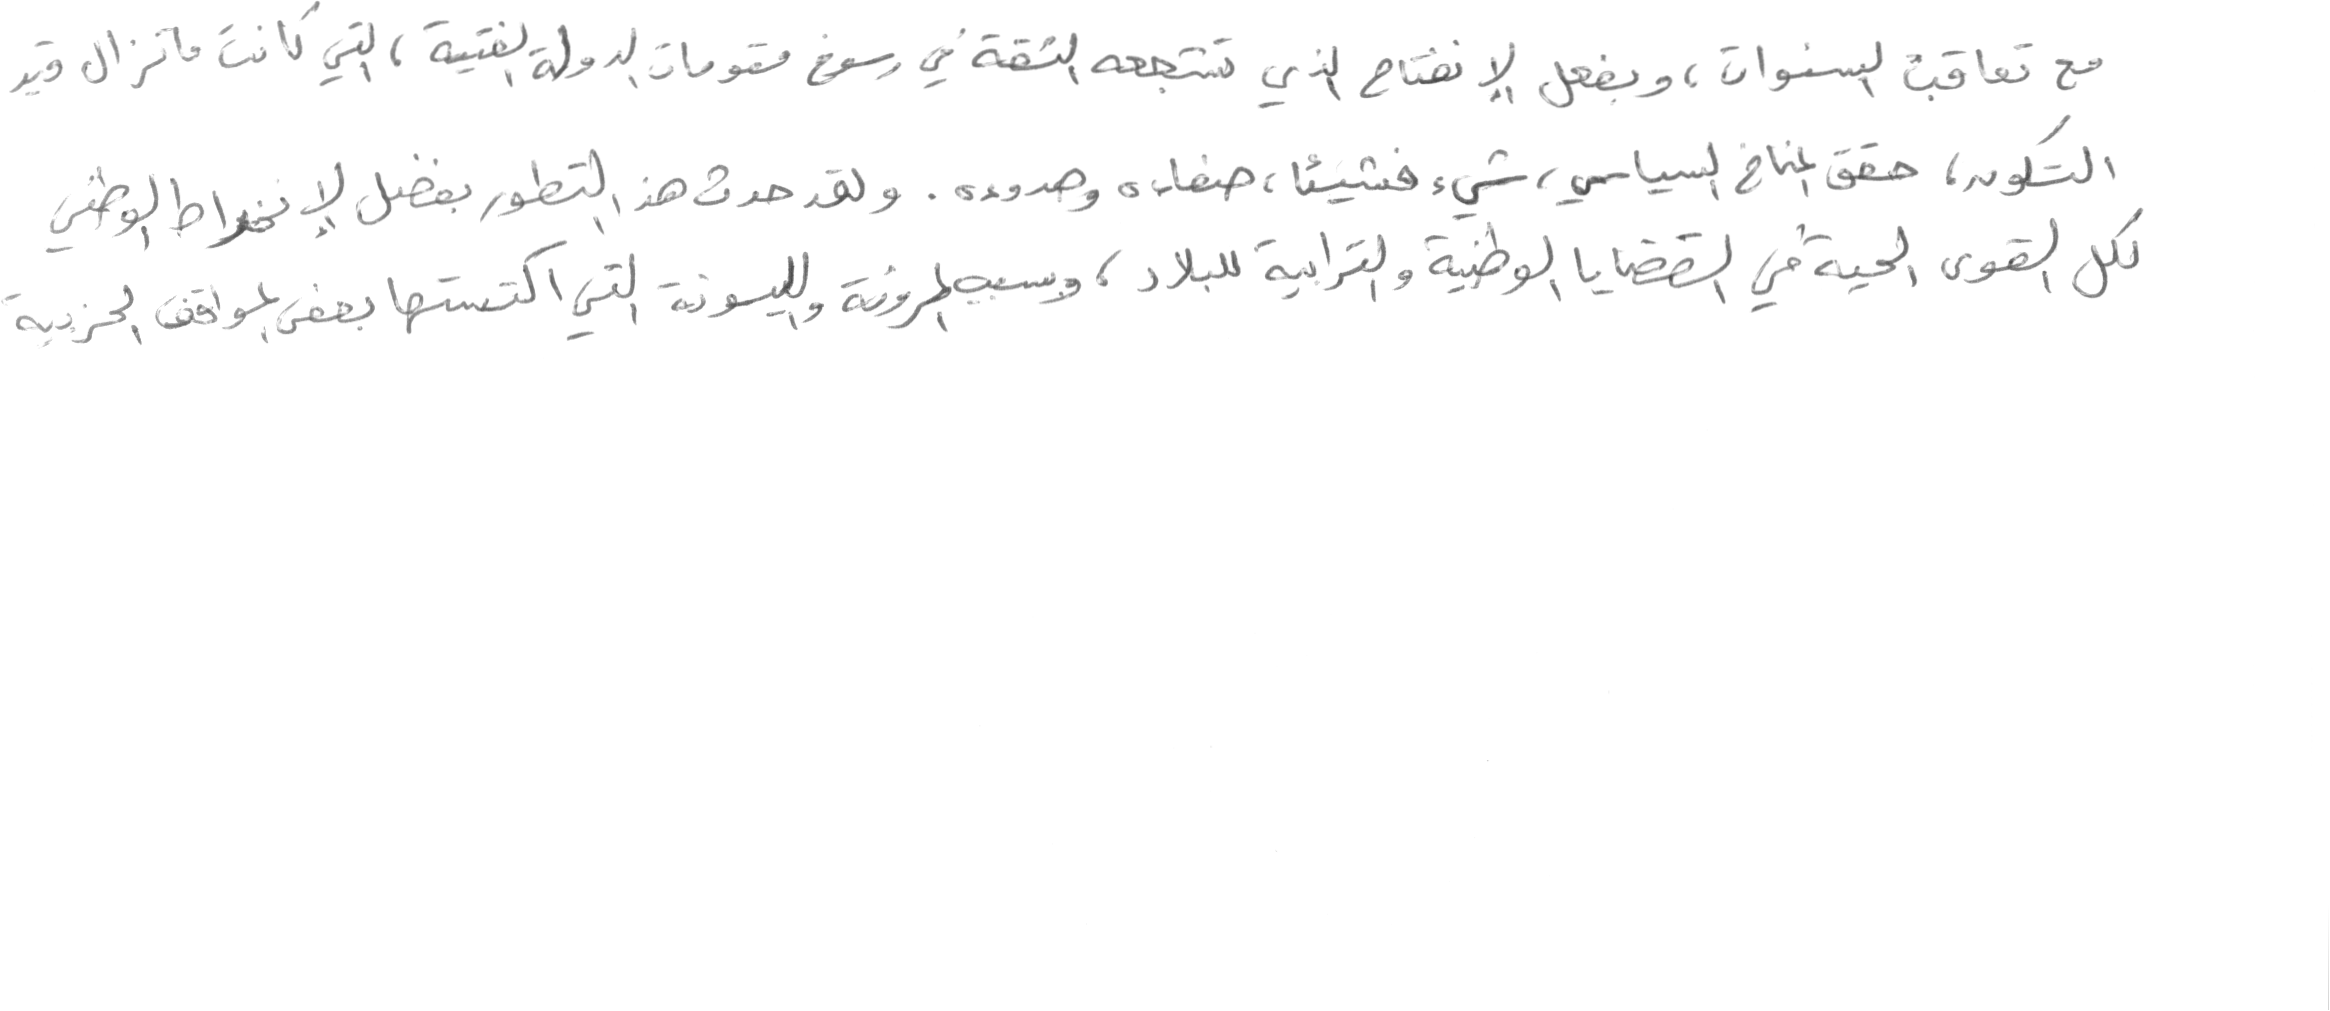 مع تعاقب السنوات، وبفعل الإنفتاح الذي تشجعه الثقة في رسوخ مقومات الدولة الفتية، التي كانت ماتزال قيد
التكون، حقق المناخ السياسي، شيء فشيئا، صفاءه وهدوءه. ولقد حدث هذا التطور بفضل الإنخراط الوطني
لكل القوى الحية في القضايا الوطنية والترابية للبلاد، وبسبب المرونة والليونة التي اكتستها بعض المواقف الحزبية